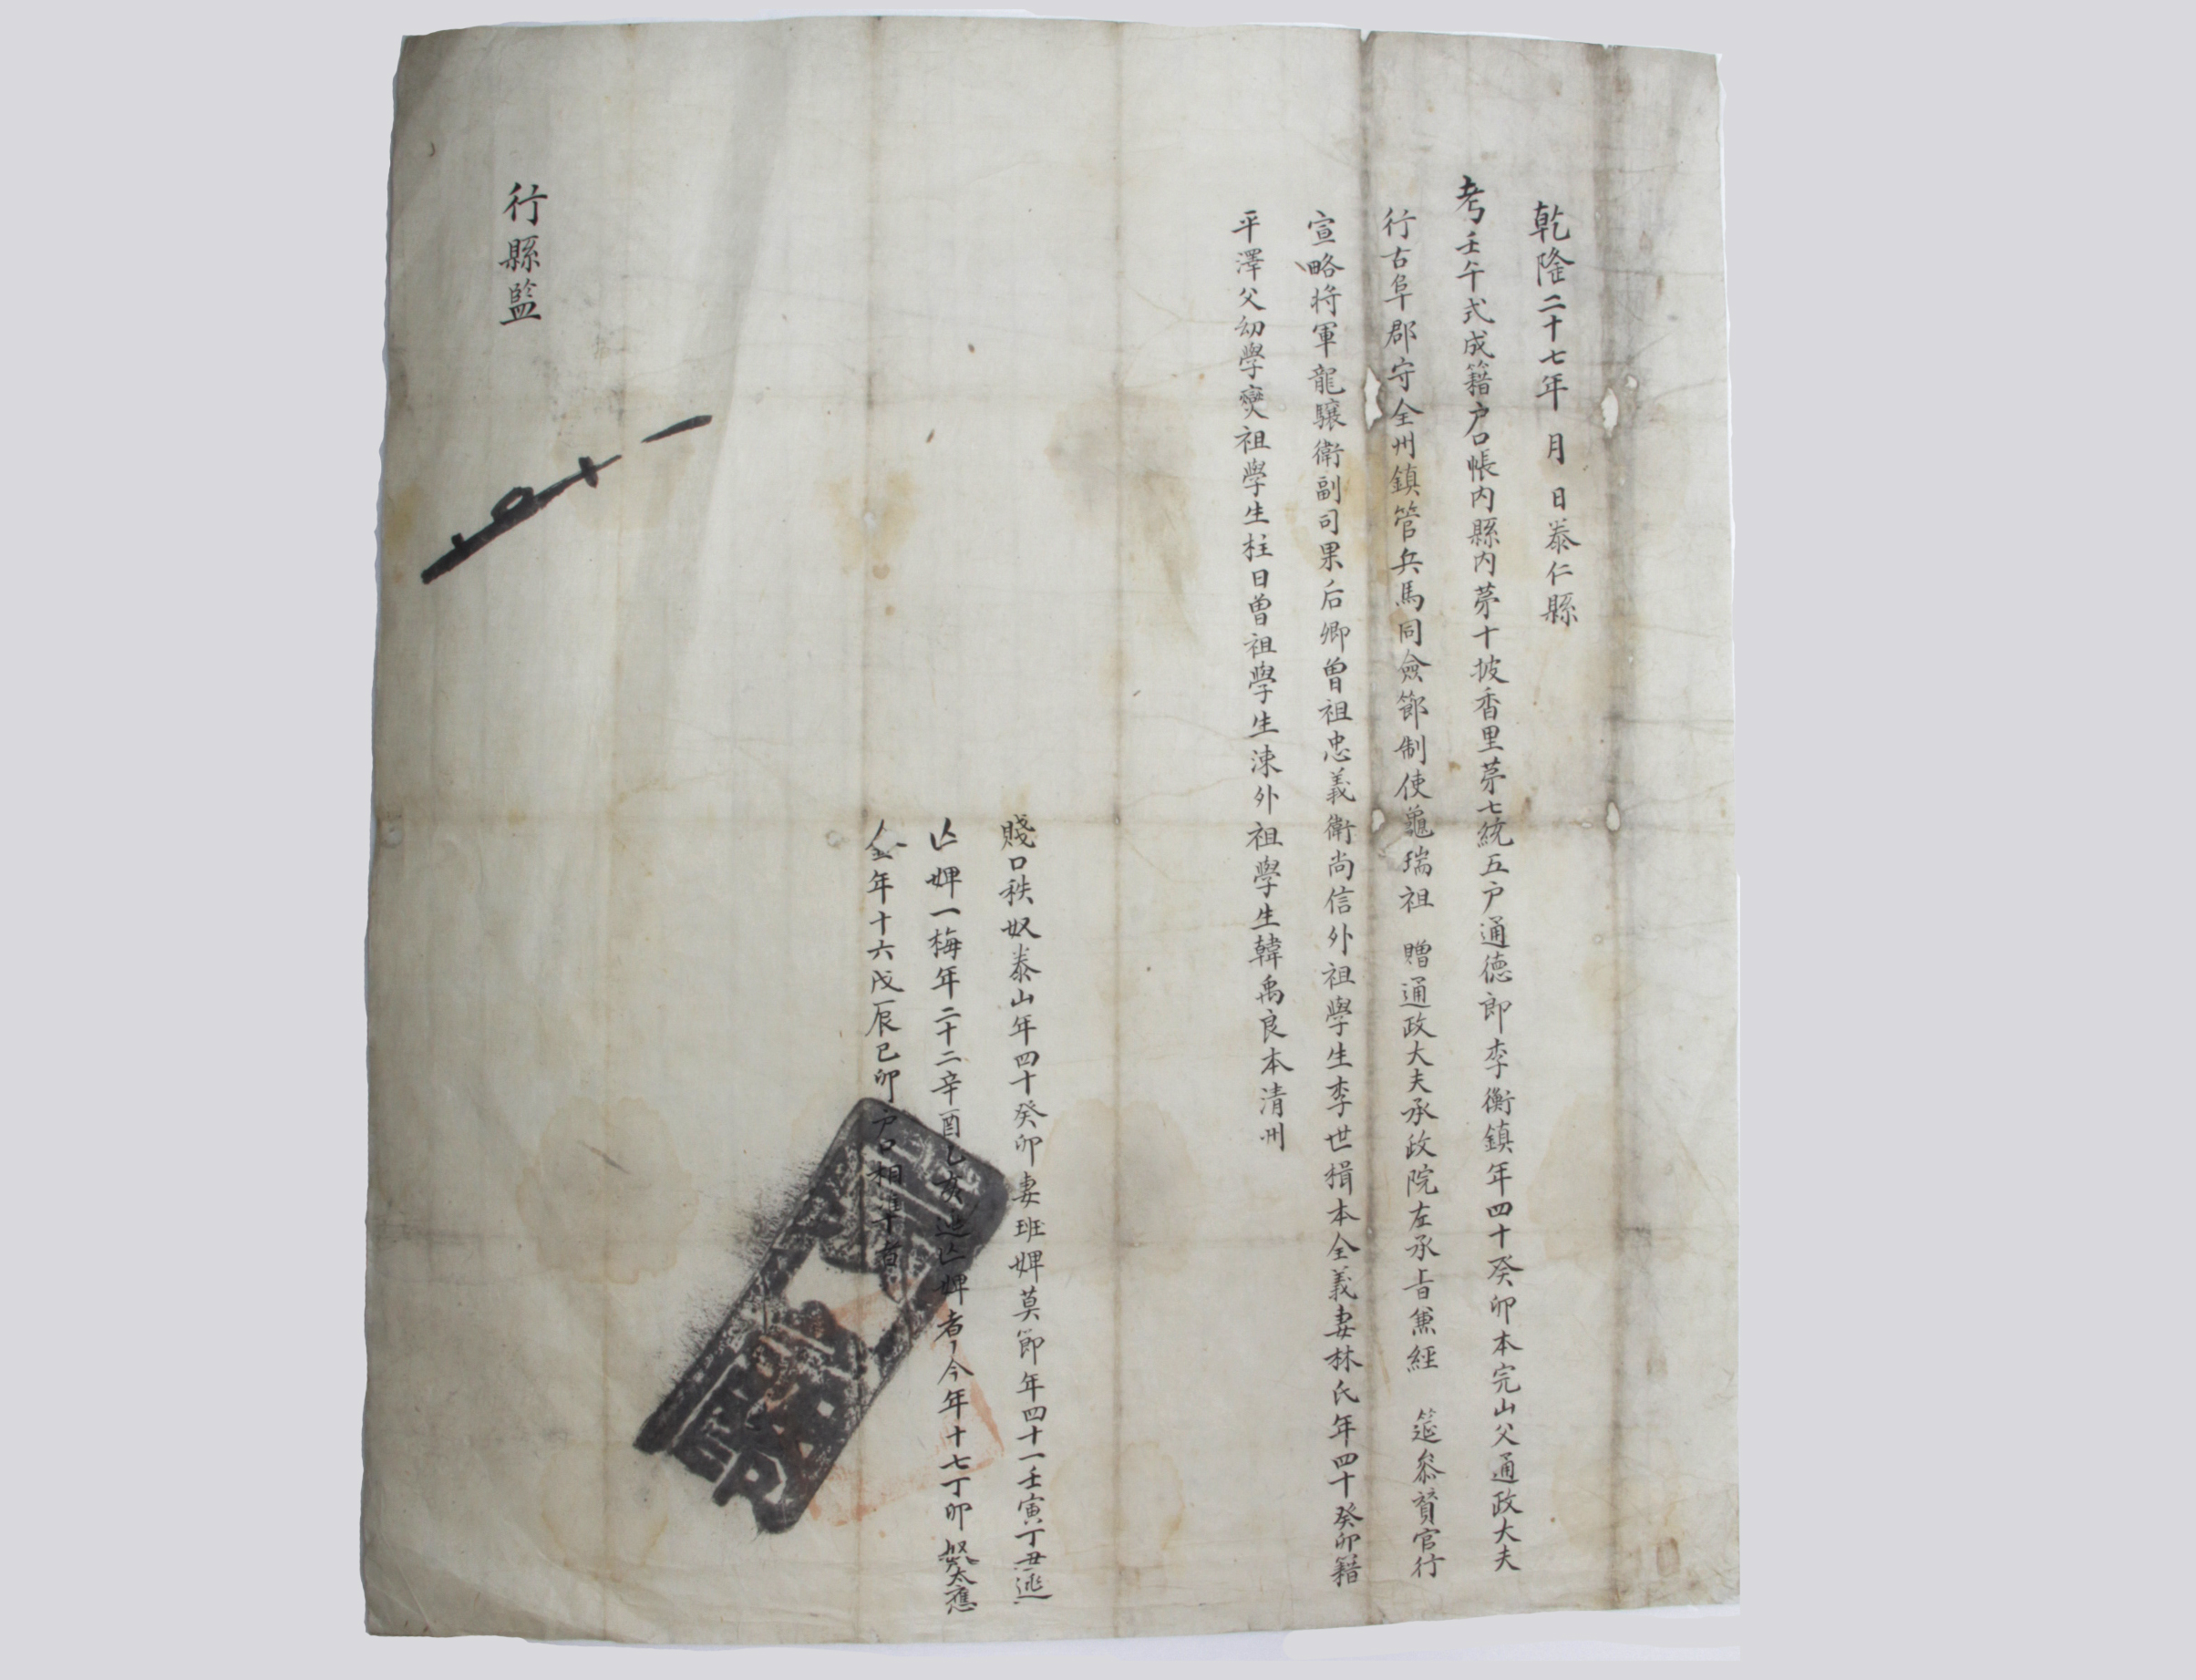 乾隆二十七年 月 日泰仁縣
考壬午式成籍户口帳內縣內苐十坡香里苐七統五户通德郎李衡鎮年四十癸卯本完山父通政大夫
行古阜郡守全州鎮管兵馬同僉節制使龜瑞祖 贈通政大夫承政院左承旨兼經 筵叅贊官行
宣略將軍龍驤衛副司果后卿曾祖忠義衛尚信外祖學生李世楫本全義妻林氏年四十癸卯籍
平澤父幼學㷫祖學生柱日曾祖學生涑外祖學生韓禹良本清州
賤口秩奴泰山年四十癸卯妻班婢莫節年四十一壬寅丁丑逃
亡婢一梅年二十二辛酉乙亥逃亡婢者了今年十七丁卯奴太應
金年十六戊辰己卯户口相準者
行縣監